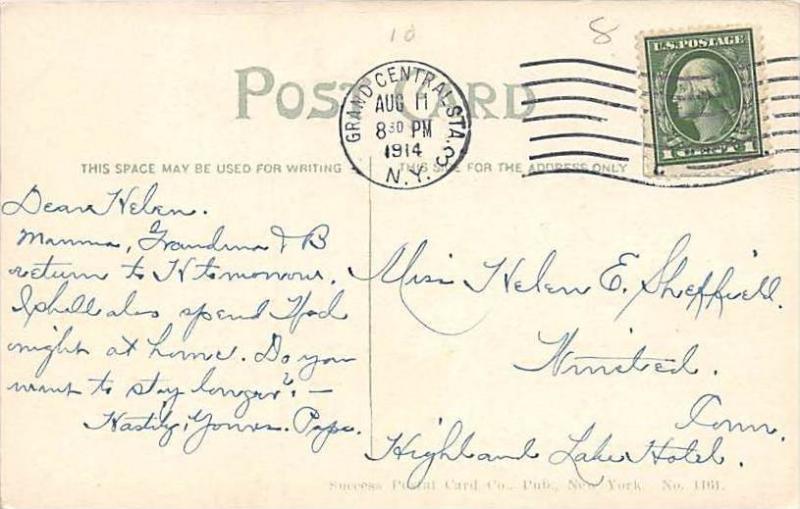 10
8
U.S. POSTAGE
1 CENT 1
POST CARD
GRAND CENTRAL STA. 3
AUG 11
8 30 PM
1914
N.Y.
THIS SPACE MAY BE USED FOR WRITING
THIS SIDE FOR THE ADDRESS ONLY
Dear Helen.
Mamma, Grandma & B
return to H tomorrow.
I shall also spend Wed
night at home. Do you
want to stay longer? —
Hastily, Yours. Papa.
Miss Helen E. Sheffield.
Winsted.
Conn.
Highland Lake Hotel.
Success Postal Card Co., Pub., New York. No. 1161.